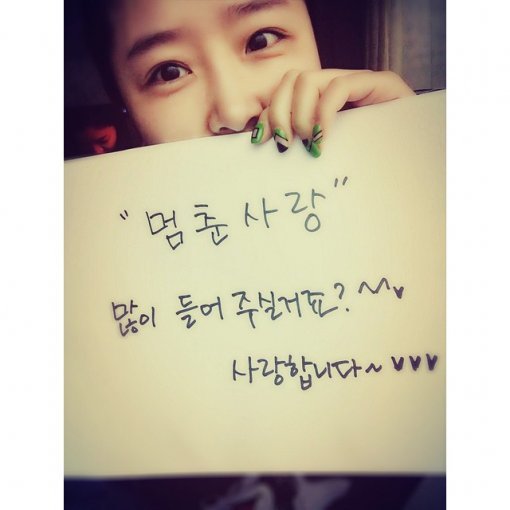 "멈춘사랑"
많이 들어 주실거죠?~♥
사랑합니다~♥♥♥